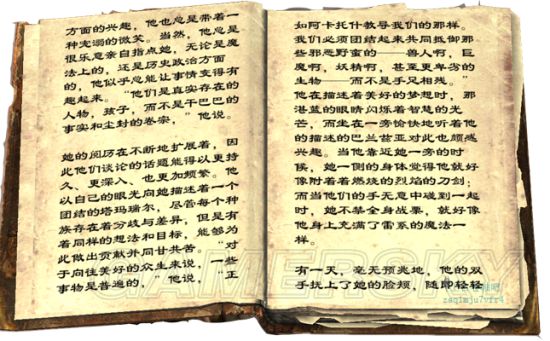 方面的兴趣，他也总是带着一
种宠溺的微笑。当然，他总是
很乐意亲自指点她，无论是魔
法上的，还是历史政治方面
的，他似乎总能让事情变得有
趣起来。“他们是真实存在的
人物，孩子，而不是干巴巴的
事实和尘封的卷宗，”他说。
她的阅历在不断地扩展着，因
此他们谈论的话题能得以更持
久、更深入、也更加频繁。他
以自己的眼光向她描述着一个
团结的塔玛瑞尔，尽管每个种
族存在着分歧与差异，但是有
着同样的想法和目标，能够为
此做出贡献并同甘共苦。“对
于向往美好的众生来说，一些
事物是普遍的，”他说，“正
如阿卡托什教导我们的那样。
我们必须团结起来共同抵御那
些邪恶野蛮的——兽人啊，巨
魔啊，妖精啊，甚至更卑劣的
生物——而不是手足相残。”
他在描述着美好的梦想时，那
湛蓝的眼睛闪烁着智慧的光
芒，而坐在一旁愉快地听着他
的描述的巴兰兹亚对此也颇感
兴趣。当他靠近她一旁的时
候，她一侧的身体觉得他就好
像附着着燃烧的烈焰的刀剑；
而当他们的手无意中碰到一起
时，她不禁全身战栗，就好像
他身上充满了雷系的魔法一
样。
有一天，毫无预兆地，他的双
手抚上了她的脸颊，随即轻轻
GAMERSKY
zsq1mju7vfr4